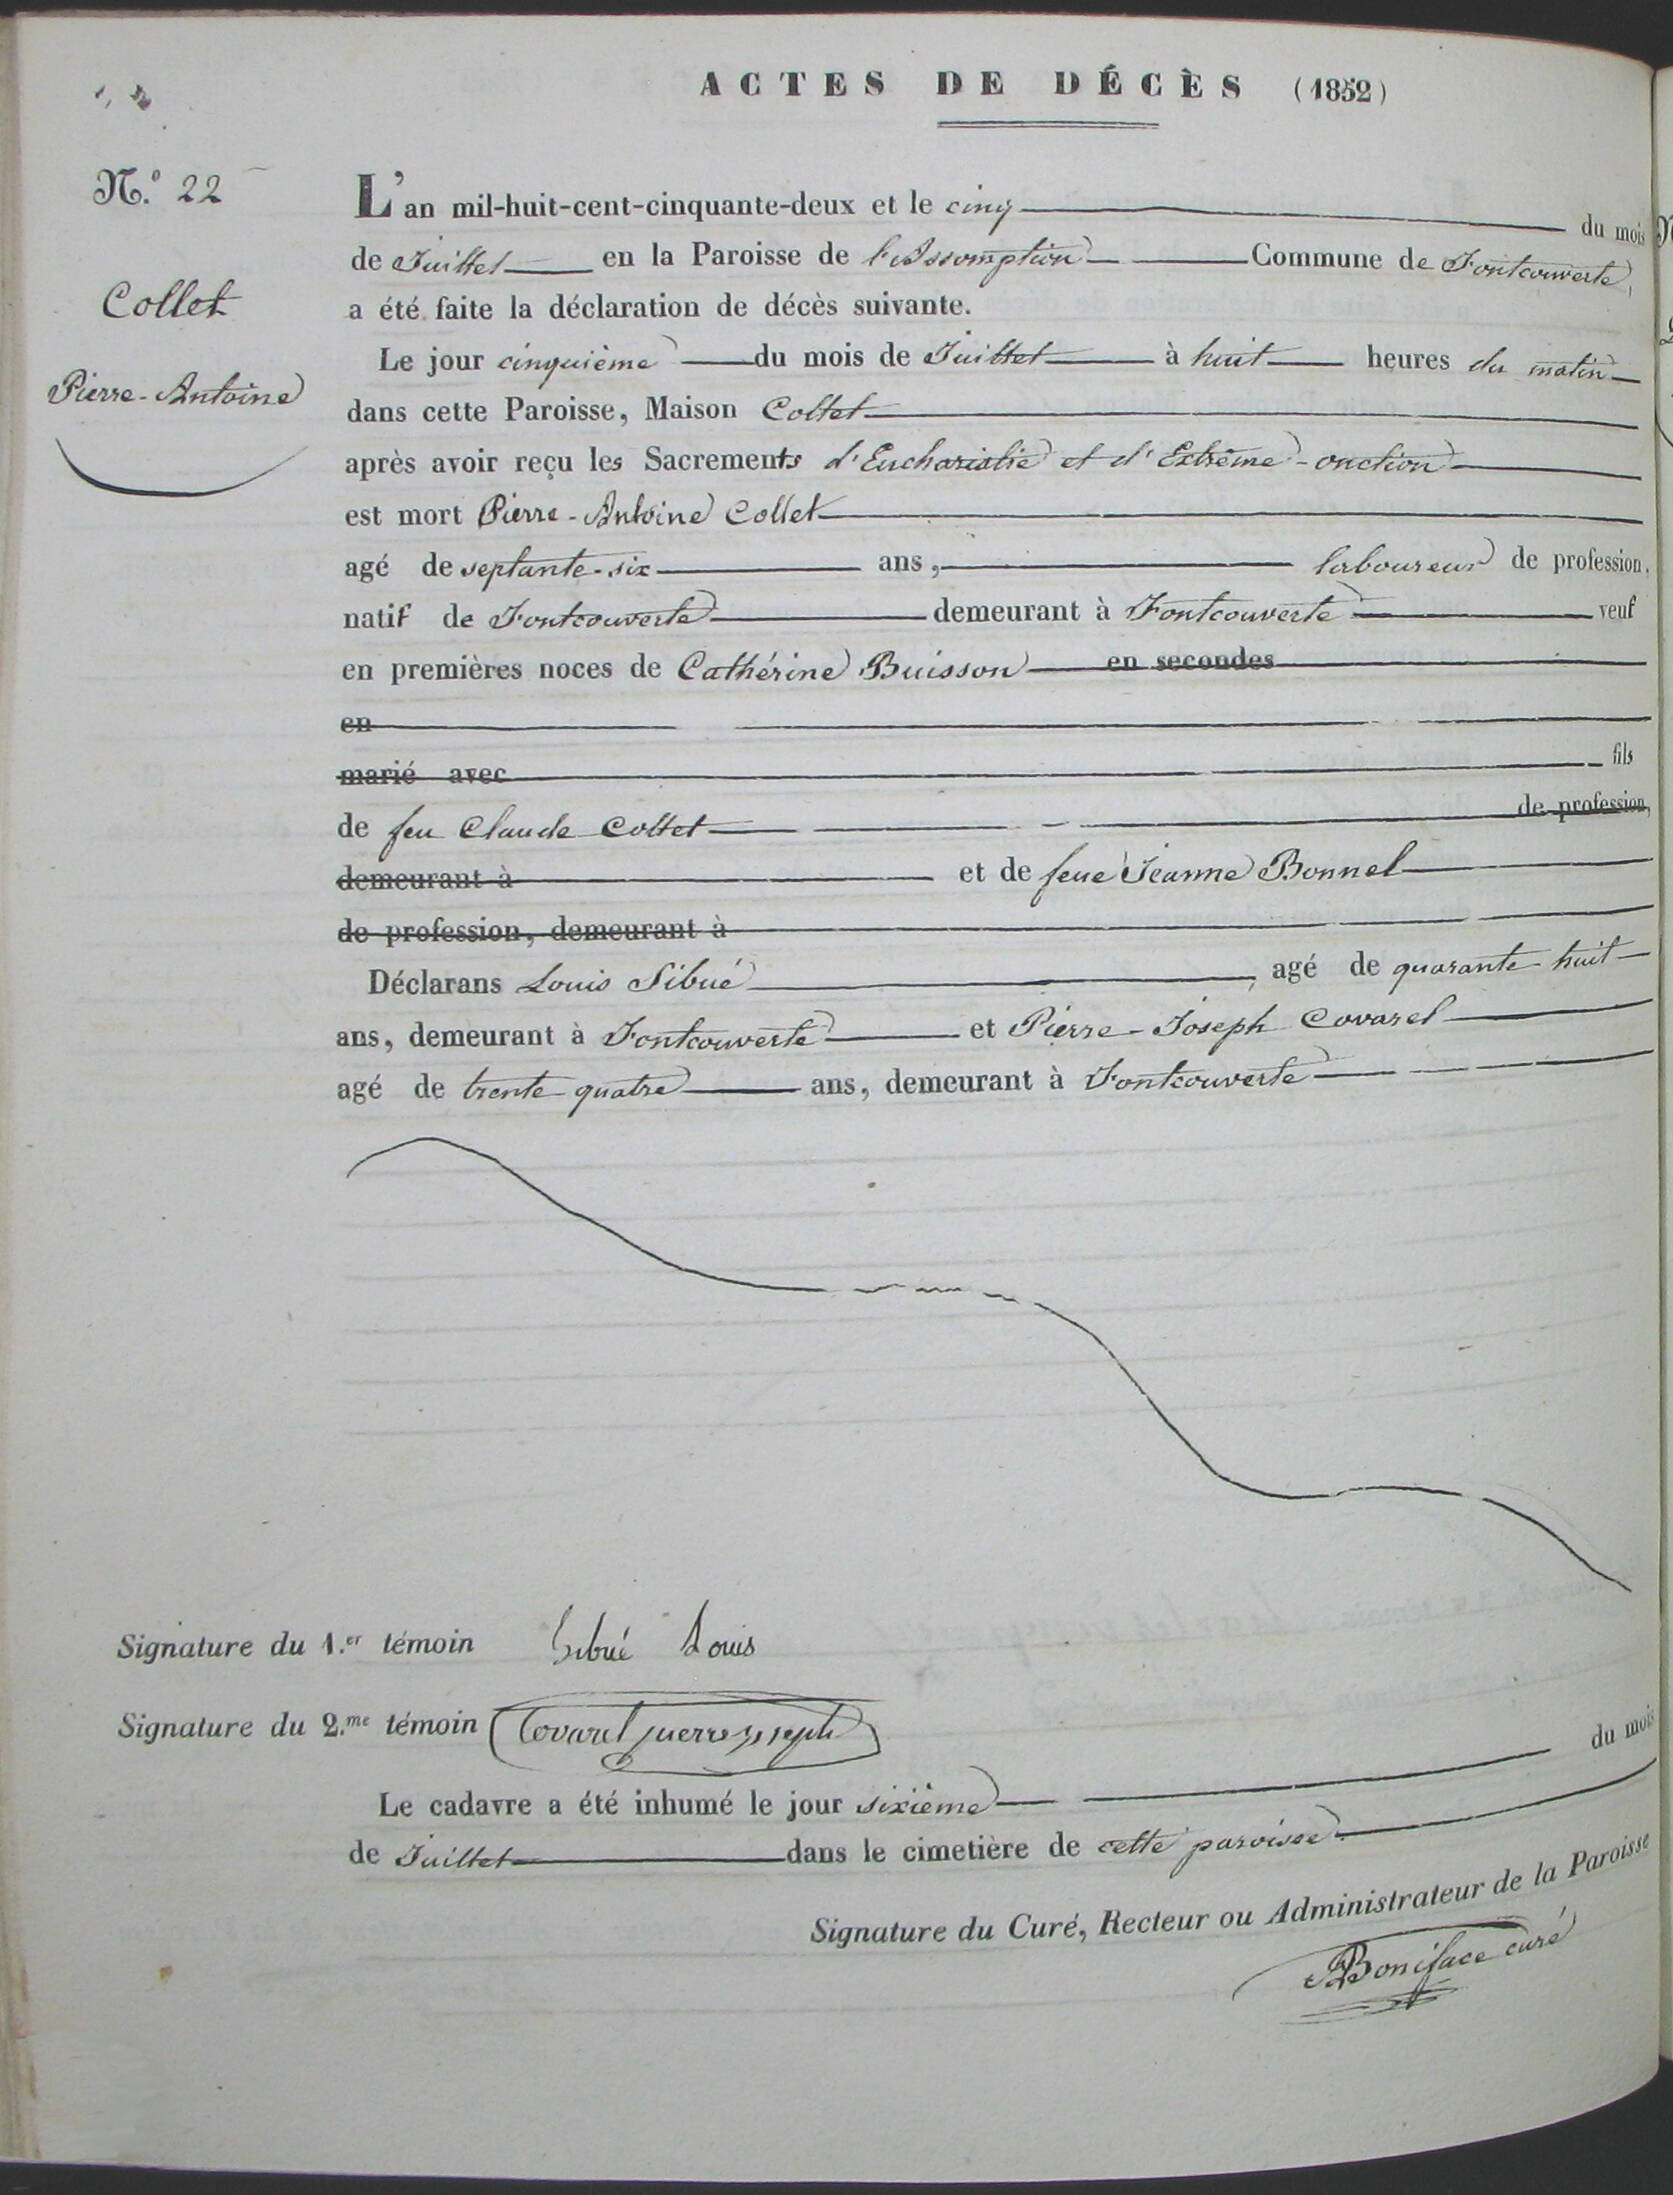 ACTES DE DÉCÈS (1852)
N.º 22
Collet
Pierre-Antoine
L'an mil-huit-cent-cinquante-deux et le cinq du mois
de Juillet en la Paroisse de l'Assomption Commune de Fontcouverte,
a été faite la déclaration de décès suivante.
Le jour cinquième du mois de Juillet à huit heures du matin
dans cette Paroisse, Maison Collet
après avoir reçu les Sacrements d'Eucharistie et d'Extrême-onction
est mort Pierre-Antoine Collet
agé de septante-six ans, laboureur de profession,
natif de Fontcouverte demeurant à Fontcouverte veuf
en premières noces de Cathérine Buisson en secondes
en
marié avec fils
de feu Claude Collet de profession,
demeurant à et de feue Jeanne Bonnel
de profession, demeurant à
Déclarans Louis Sibué agé de quarante-huit
ans, demeurant à Fontcouverte et Pierre-Joseph Covarel
agé de trente-quatre ans, demeurant à Fontcouverte
Signature du 1.er témoin Sibué Louis
Signature du 2.me témoin Covarel pierre joseph
Le cadavre a été inhumé le jour sixième du mois
de Juillet dans le cimetière de cette paroisse.
Signature du Curé, Recteur ou Administrateur de la Paroisse
Boniface curé